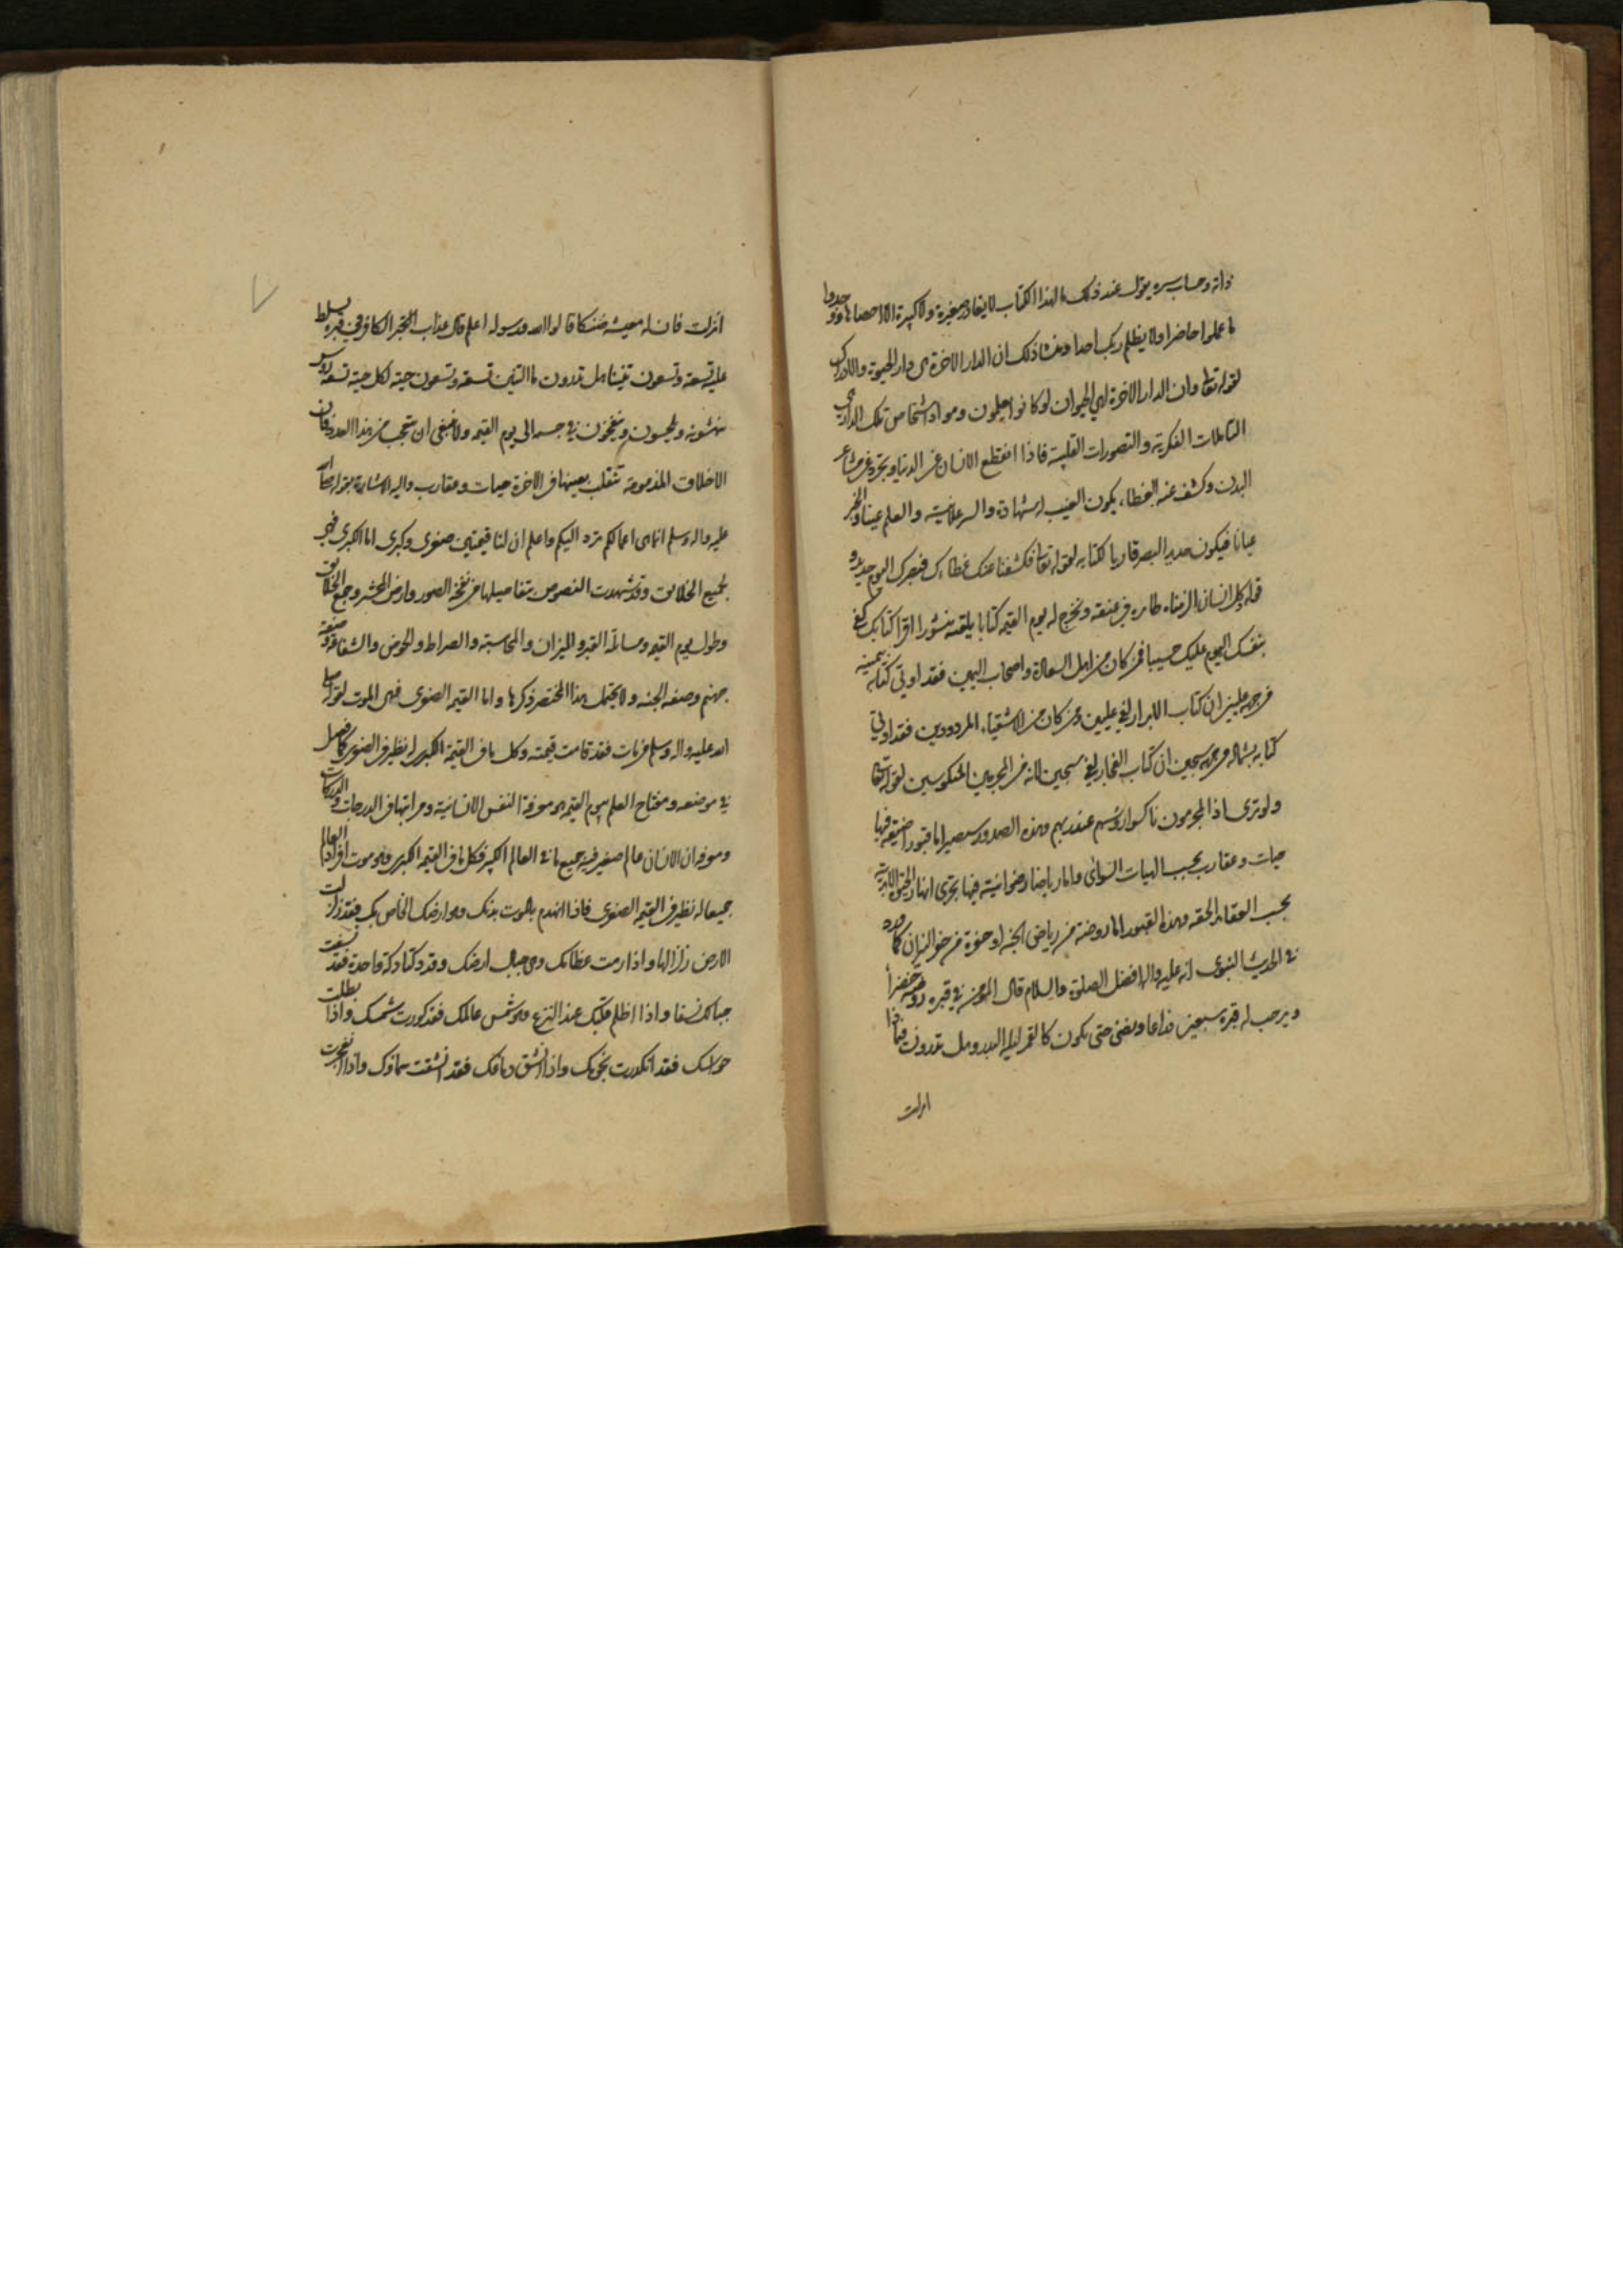 ذاته وحساب سره يقول عند ذلك ما لهذا الكتاب لا يغادر صغيرة ولا كبيرة الا احصاها ووجدوا
ما عملوا حاضرا ولا يظلم ربك احدا ومنشا ذلك ان الدار الاخرة هى دار الحيوة والادراك
لقوله تعالى وان الدار الاخرة لهى الحيوان لو كانوا يعلمون ومواد اشخاص تلك الدار هى
التاملات الفكرية والتصورات القلبية فاذا انقطع الانسان عن الدنيا وتجرد عن مشاعر
البدن وكشف عنه الغطاء يكون الغيب له شهادة والسر علانية والعلم عينا والخبر
عيانا فيكون حديد البصر قاريا لكتابه لقوله تعالى فكشفنا عنك غطاءك فبصرك اليوم حديد و
قوله وكل انسان الزمناه طائره فى عنقه ونخرج له يوم القيمة كتابا يلقيه منشورا اقرا كتابك كفى
بنفسك اليوم عليك حسيبا فمن كان من اهل السعادة واصحاب اليمين فقد اوتى كتابه بيمينه
من جهة عليين ان كتاب الابرار لفى عليين ومن كان من الاشقياء المردودين فقد اوتى
كتابه بشماله من جهة سجين ان كتاب الفجار لفى سجين لانه من المجرمين المنكوسين لقوله تعالى
ولو ترى اذ المجرمون ناكسوا رؤسهم عند ربهم وهذه الصدور سيصير اما قبورا ضيقة فيها
حيات وعقارب بحسب الهيات السوأى واما رياضا رضوانية فيها تجرى انهار الحيوة الابدية
بحسب العقايد الحقه وهذه القبور اما روضة من رياض الجنه او حفرة من حفر النيران كما ورد
فى الحديث النبوى انه عليه واله افضل الصلوة والسلام قال المؤمن فى قبره روضة خضراً
ويرحب له قبره سبعين ذراعا ويضئ حتى يكون كالقمر ليلة البدر وهل تدرون فيما ذا
انزلت
انزلت فان له معيشة ضنكا قالوا الله ورسوله اعلم قال عذاب الكافر فى قبره يسلط
عليه تسعة وتسعون تنينا هل تدرون ما التنين تسعة وتسعون حية لكل حية تسعة رؤس
ينهشونه ويلحسون وينفخون فى جسمه الى يوم القيمة ولا ينبغى ان يتعجب من هذا العدد فان
الاخلاق المذمومة تنقلب بعينها فى الاخرة حيات وعقارب واليه الاشارة بقوله صلى الله
عليه واله وسلم انما هى اعمالكم ترد اليكم واعلم ان لنا قيمتين صغرى وكبرى اما الكبرى فهى
لجميع الخلايق وقد شهدت النصوص بتفاصيلها من نفخ الصور وارض المحشر وجمع الخلايق
وطول يوم القيمة ومسائلة القبر والميزان والمحاسبة والصراط والحوض والشفاعة وصفة
جهنم وصفه الجنه ولا يحتمل هذا المختصر ذكرها واما القيمة الصغرى فهى الموت لقوله صلى
الله عليه واله وسلم من مات فقد قامت قيمته وكل ما فى القيمة الكبرى له نظير فى الصغرى كما فصل
فى موضعه ومفتاح العلم بيوم القيمة هو معرفة النفس الانسانية ومراتبها فى الدرجات والدركات
ومعرفة ان الانسان عالم صغير فيه جميع ما فى العالم الكبير فكل ما فى القيمة الكبرى وهو موت افراد العالم
جميعا له نظير فى القيمة الصغرى فاذا انهدم بالموت بدنك وهو ارضك الخاص بك فقد زلزلت
الارض زلزالها واذا رمت عظامك وهى جبال ارضك وقد دكتا دكة واحدة فقد نسفت
جبالك نسفا واذا اظلم قلبك عند النزع وهو شمس عالمك فقد كورت شمسك واذا بطلت
حواسك فقد انكدرت نجومك واذا انشق دماغك فقد انشقت سماؤك واذا انفجرت